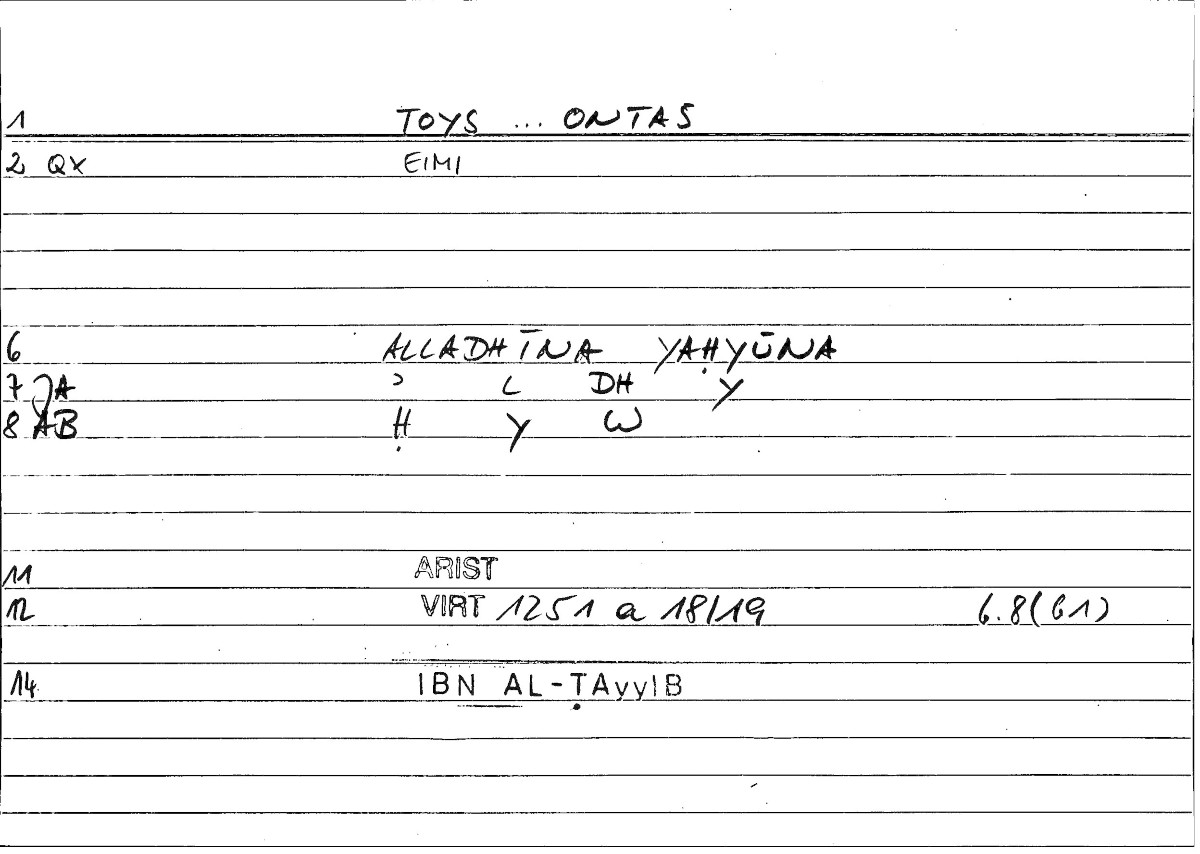 1 TOYS ... ONTAS
2 QX EIMI
6 ALLADHĪNA YAḤYŪNA
7 A ʾ L DH Y
8 AB Ḥ Y W
11 ARIST
12 VIRT 1251 a 18/19 6.8(61)
14 IBN AL-ṬAyyIB